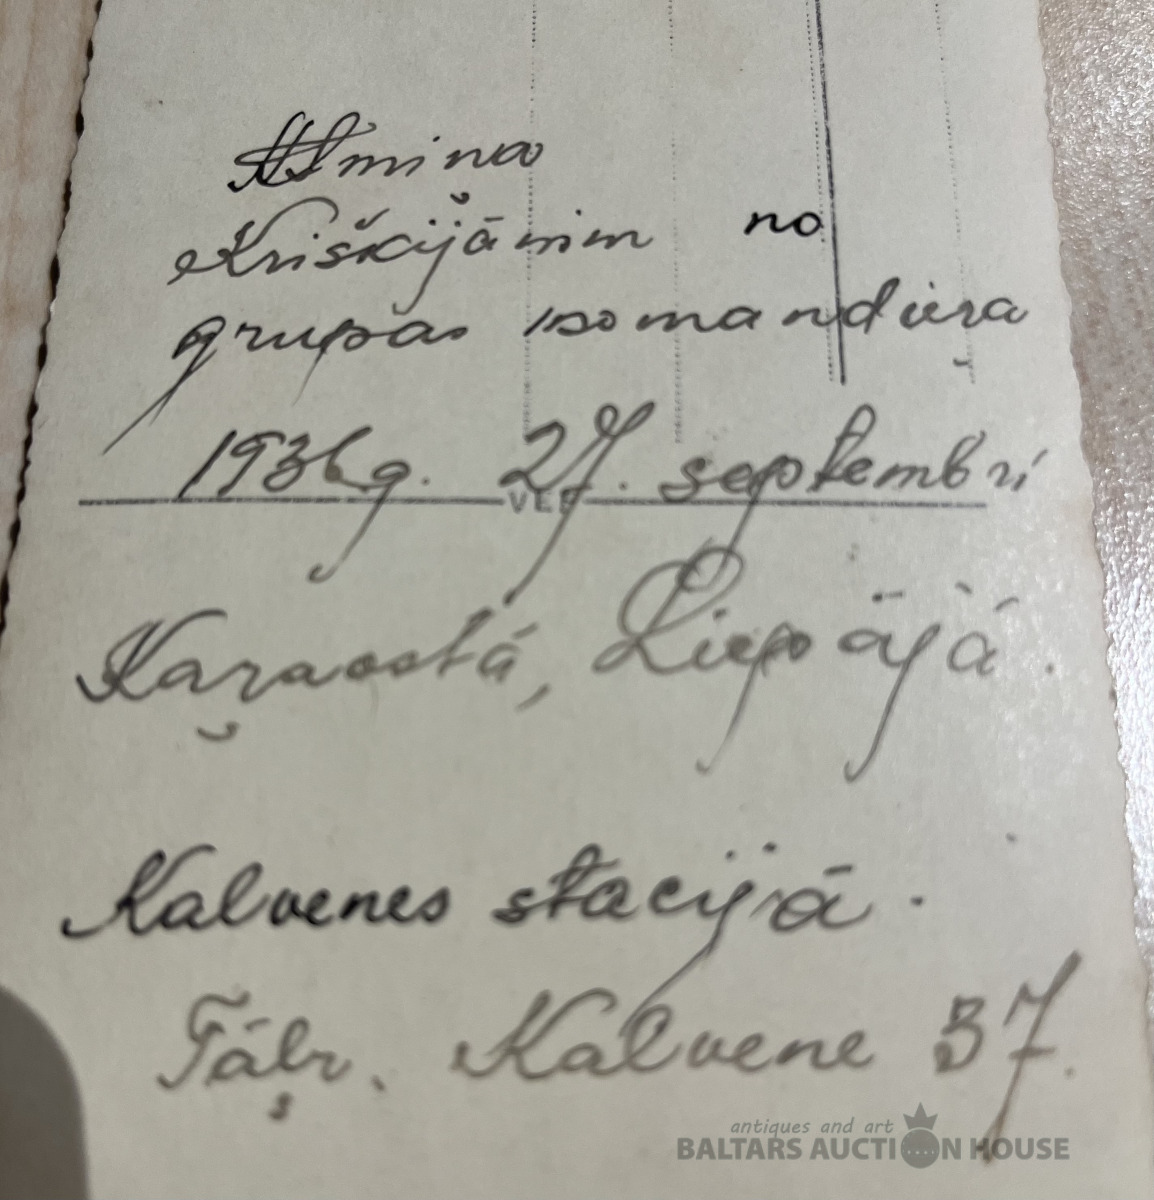 Atmiņa
Kriškijānim no
grupas komandiera
1936 g. 27. septembrī
VEF
Kaŗaostā, Liepājā.
Kalvenes stacijā.
Tāļr. Kalvene 37.
antiques and art
BALTARS AUCTION HOUSE